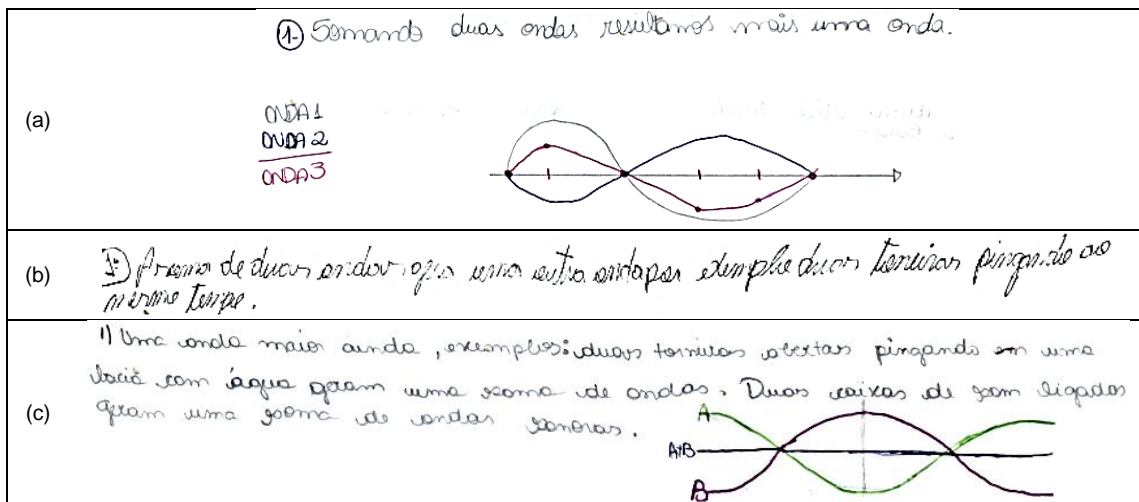 (a)
1- Somando duas ondas resultamos mais uma onda.
ONDA 1
ONDA 2
ONDA 3
(b)
1- A soma de duas ondas uma outra onda por exemplo duas torneiras pingando ao
mesmo tempo.
(c)
1) Uma onda maior ainda, exemplos: duas torneiras abertas pingando em uma
bacia com água geram uma soma de ondas. Duas caixas de som ligadas
geram uma soma de ondas sonoras.
A
A+B
B